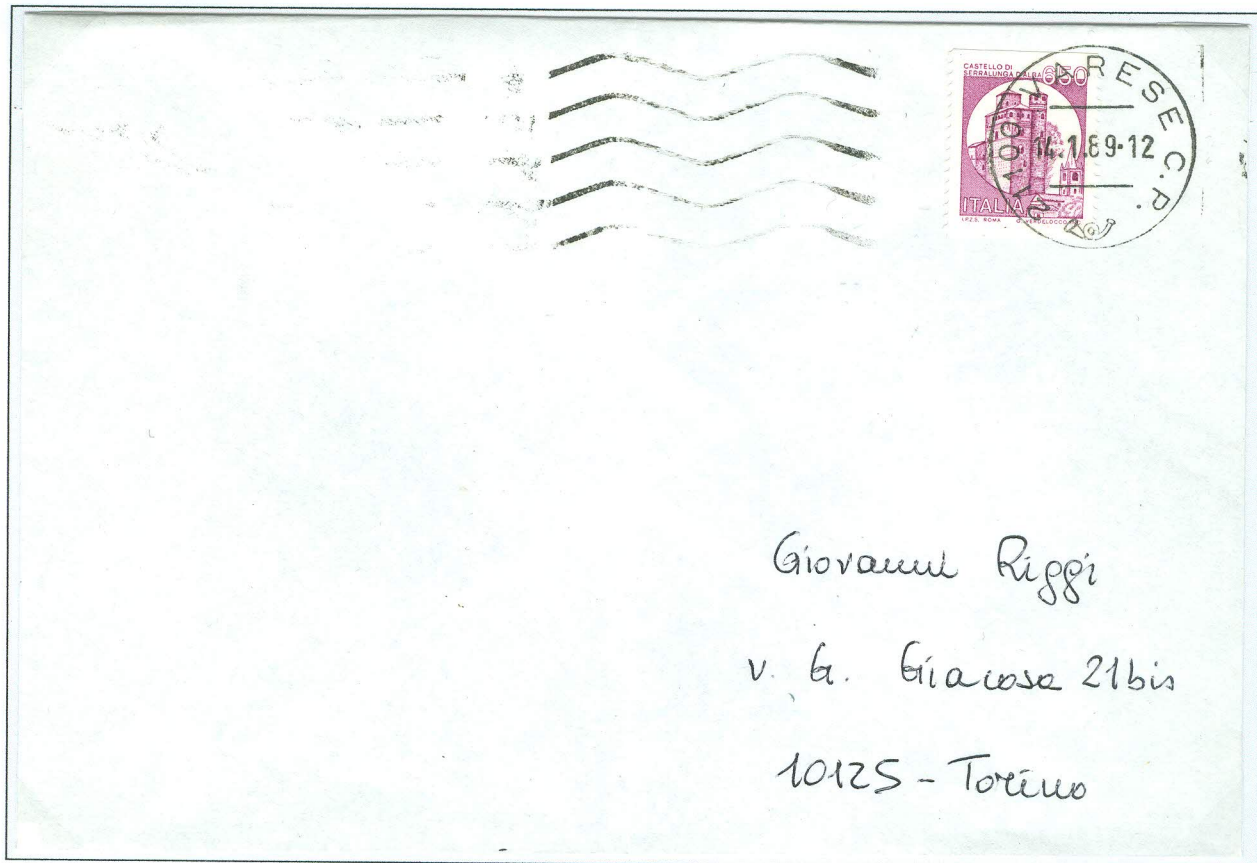 CASTELLO DI
SERRALUNGA D'ALBA 650
ITALIA
I.P.Z.S. ROMA
21100 VARESE C.P.
14.1.89-12
Giovanni Riggi
v. G. Giacosa 21bis
10125 - Torino